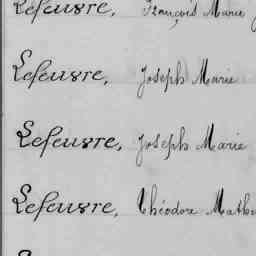 Lefeuvre, François Marie
Lefeuvre, Joseph Marie
Lefeuvre, Joseph Marie
Lefeuvre, Théodore